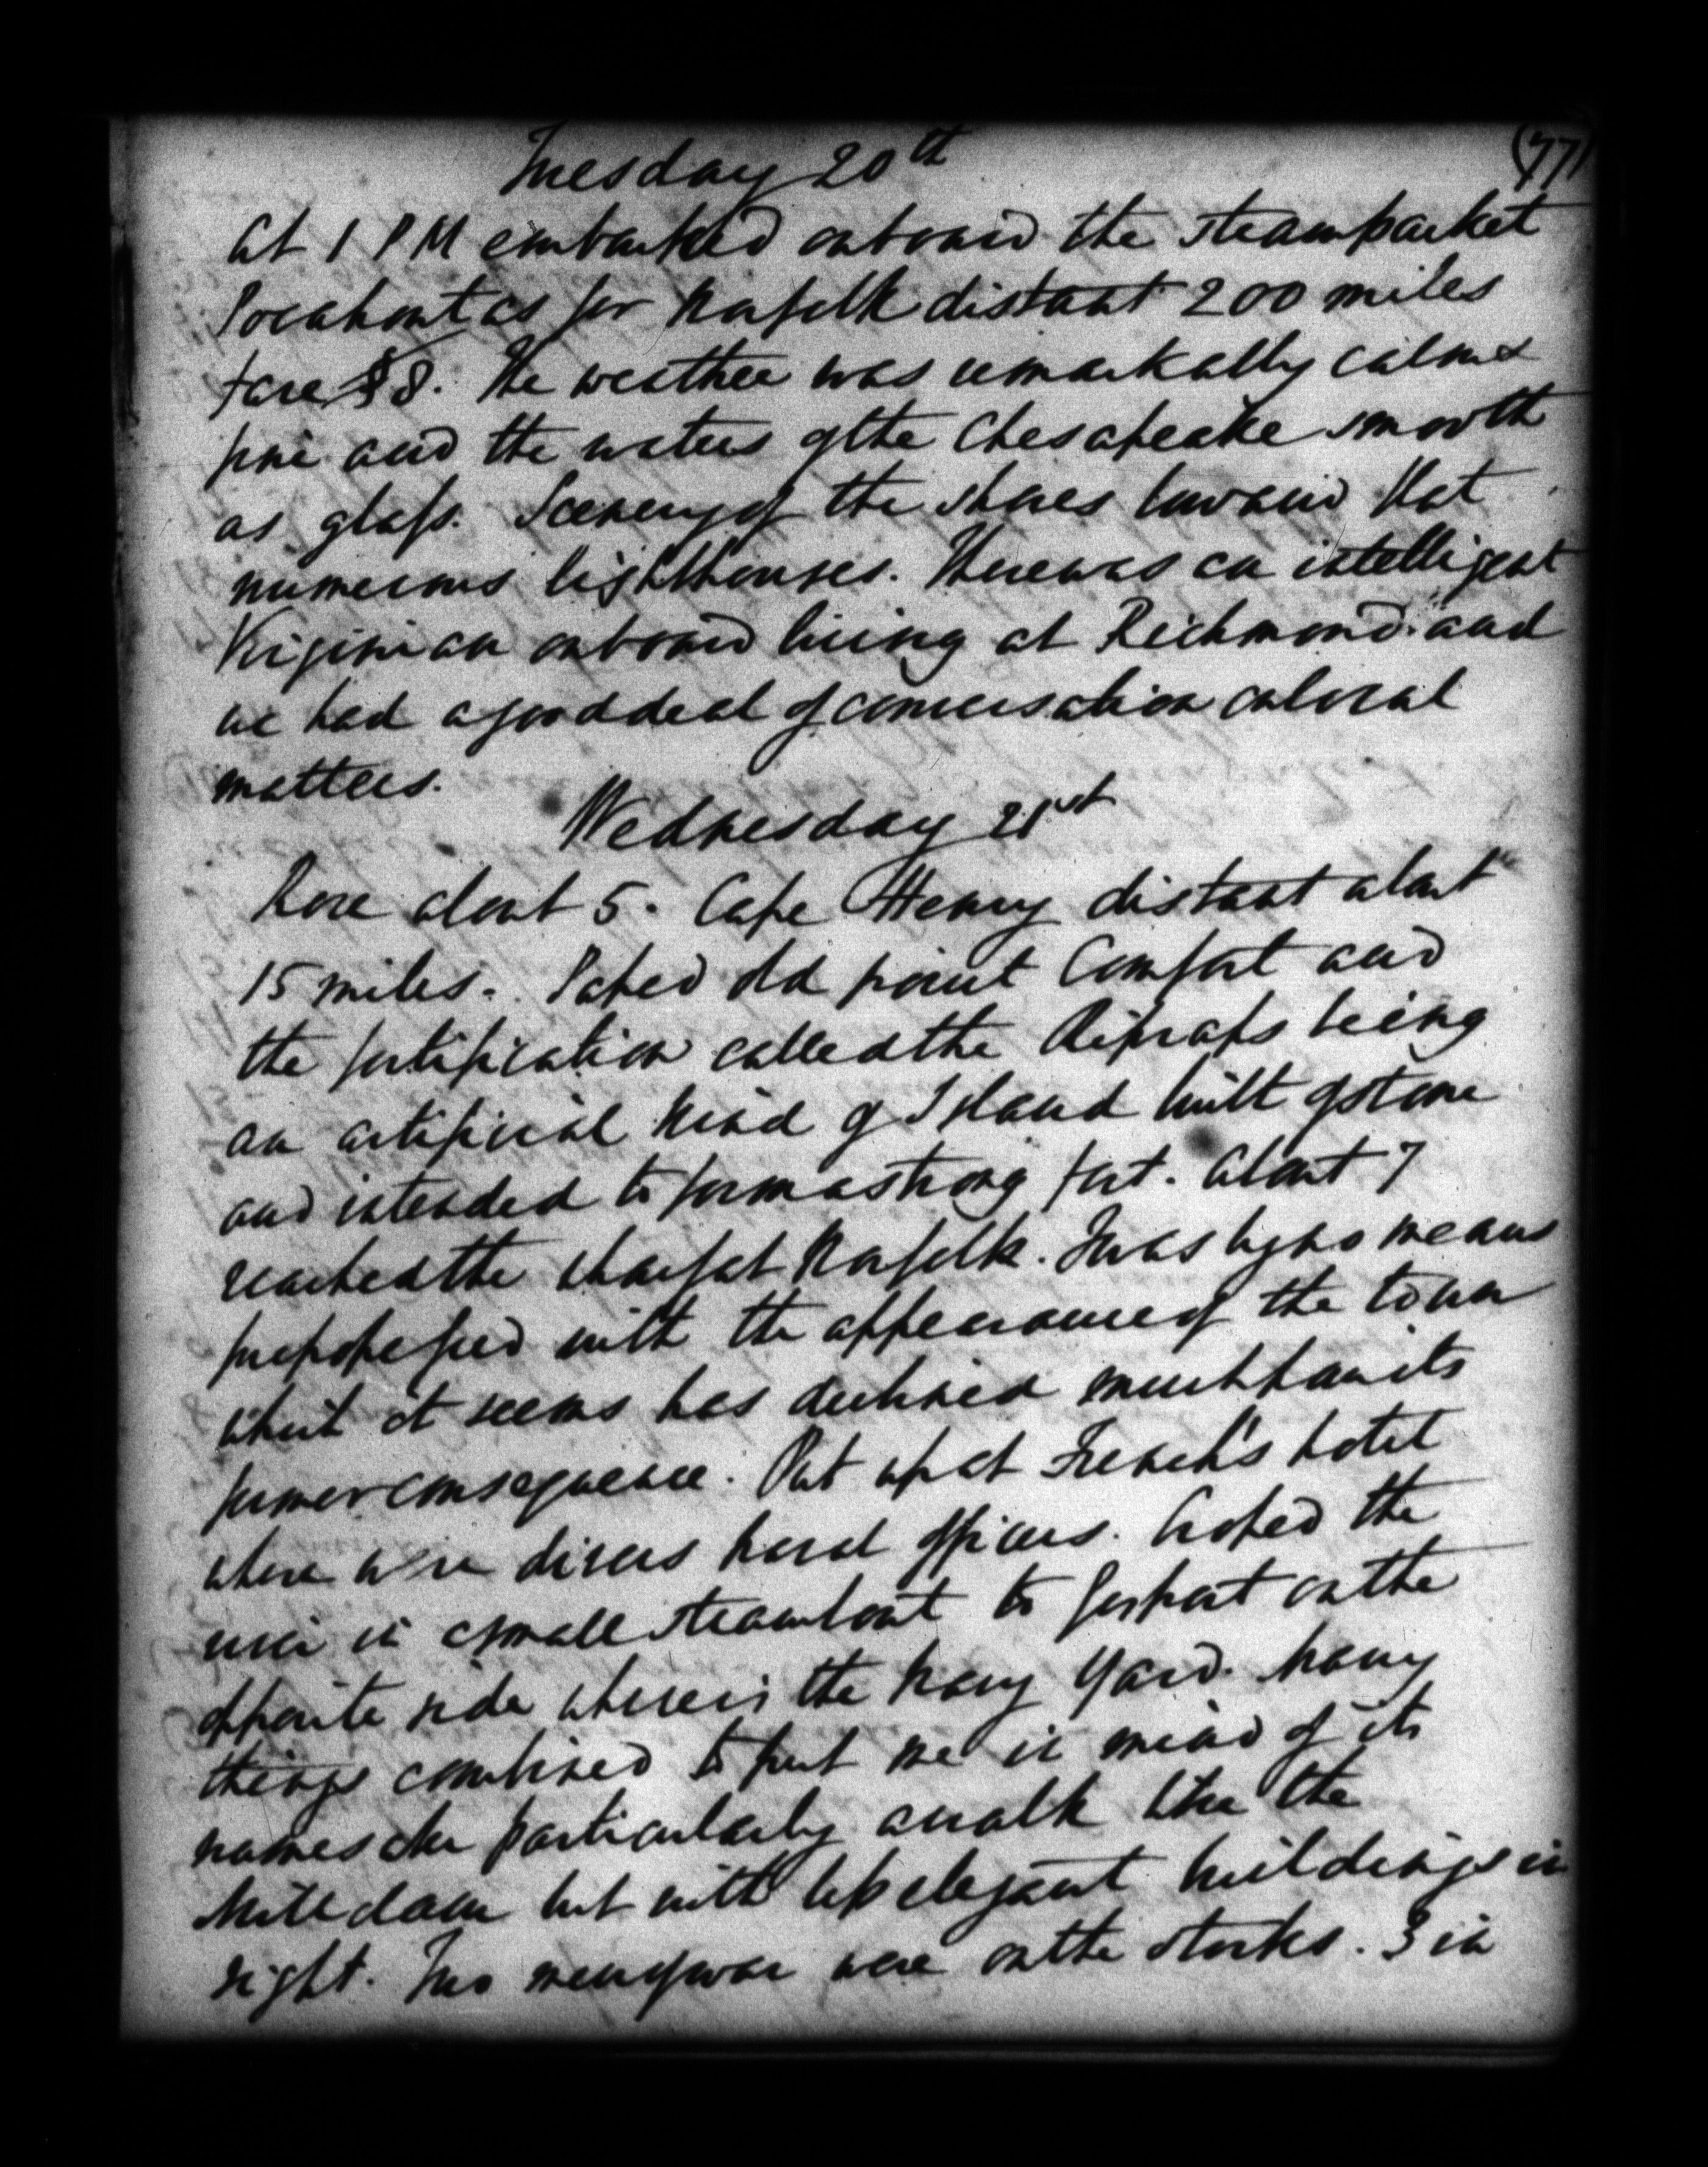 (77)
Tuesday 20th
At 1 PM embarked onboard the steampacket
Pocahontas for Norfolk distant 200 miles
Fare $8. The weather was remarkably calm &
fine and the waters of the Chesapeake smooth
as glass. Scenery of the shores low and flat
numerous lighthouses. There was an intelligent
Virginian onboard living at Richmond and
we had a good deal of conversation on local
matters.
Wednesday 21st
Rose about 5. Cape Henry distant about
15 miles. Passed Old point Comfort and
the fortification called the Ripraps being
an artificial kind of Island built of stone
and intended to form a strong fort. About 7
reached the wharf at Norfolk. I was by no means
prepossessed with the appearance of the town
which it seems has declined much from its
former consequence. Put up at French's hotel
where were divers naval officers. Crossed the
river in a small steamboat to Gosport on the
opposite side where is the Navy Yard. Many
things combined to put me in mind of its
namesake particularly a walk like the
Milldam but with less elegant buildings in
sight. Two men of war were on the stocks. 3 in